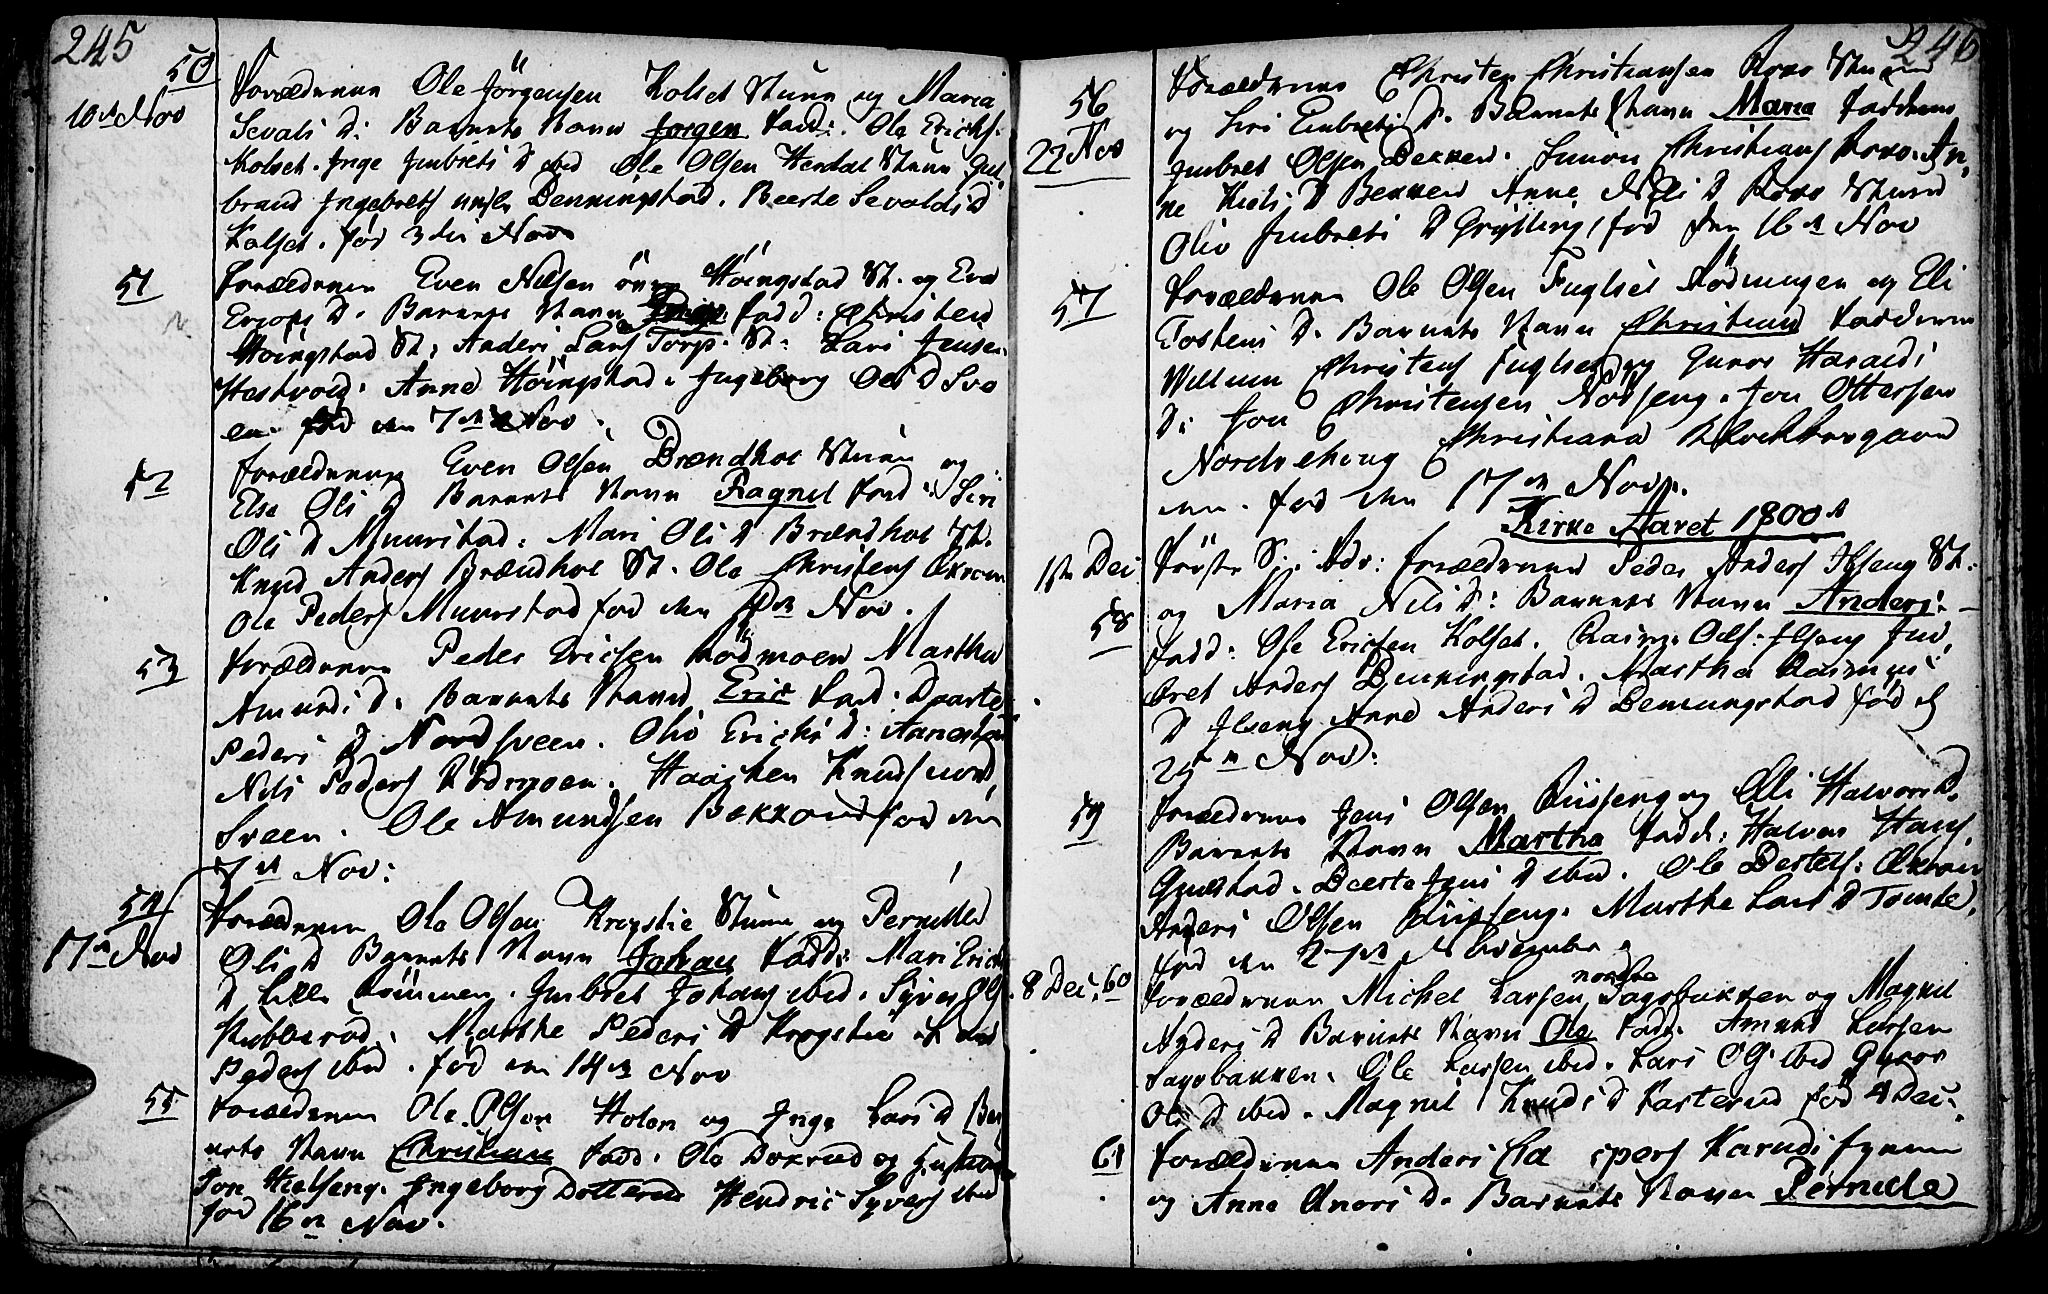 245
50
10de Nov
Forældrene Ole Jörgensen Kolset Stuen og Maria
Sevals D: Barnets Navn Jorgen fadd: Ole Ericks:
Kolset. Inge Imbrets D ibd Ole Olsen Herdal Stuen Gul
brand Ingebrets Benningstad. Beerte Sevalds D
Kolset. fød 3de Nov
51
Forældrene Even Nilsen övre Höingstad St. og Eva
D. Barnets Navn fadd: Christen
Höingstad St: Anders Lars Torp St: Lars Jensen
Hestvold. Anne Höingstad. Ingeborg Ols D Sve
en fød den 7de Nov.
52
forældrene Even Olsen Brændhol Stuen og
Else Ols D Barnets Navn Ragnil fadd: Siri
Ols D Muurstad. Mari Ols D Brændhol St.
Knud Anders Brændhol St. Ole Christens Ækren
Ole Peders Muurstad fød den Nov.
53
Forældrene Peder Ericsen Rödmoen Martha
Amunds D. Barnets Navn Eric fadd. Daarte
Peders D Nordsveen. Oliv Ericks D:
Nils Peders Rödmoen. Haagken Knuds nord
Sveen. Ole Amundsen Bekkond fød den
7de Nov:
54
17de Nov
Forældrene Ole Olsen Krogstie Stuen og Pernille
Ols D Barnets Navn Johan fadd: Mari Erichs
D Lille Kömmen. Imbret Johans ibd. Syver Ols.
Stubberød. Marthe Peders D Krogstie Lars
Peders ibd. fød den 14de Nov
55
Forældrene Ole Olsen Holen og Inge Lars D Bar
nets Navn Christian fadd. Ole Dokrud og
Hielseng. Ingeborg Dotterud Hendric Syvers ibd
fød 16de Nov.
246
56
22 Nov
Forældrene Christen Christiansen Roko Stuen
og Siri Embrets D. Barnets Navn Maria fadderne
Imbret Olsen Bekken. Simon Christians Roko. An
ne Niels D Bekken Anne Niels D Roko Stuen
Oliv Imbrets D Grytting fød den 16de Nov
57
Forældrene Ole Olsen Fuglset Rödningen og Eli
Tostens D. Barnets Navn Christian fadderne
Willum Christens Fuglset og Guroe Haralds
D: Jon Christensen Norseng. Jon Ottersen
Nordvehoug Christiana Klockkergaar
en. fød den 17de Nov.
Kirke Aaret 1800de
1ste Dec
58
Förste S: i Adv: forældrene Peder Anders Ilseng St.
og Maria Nils D: Barnets Navn Anders. -
fadd: Ole Ericsen Kolset. Rasm. Ols: Ilseng Im
bret Anders Benningstad. Martha Rasmus
D Ilseng Anne Anders D Benningstad fød d
25de Nov:
59
Forældrene Jens Olsen Buseng og Eli Halvors D.
Barnets Navn Martha fadd: Halvor Hans
Grustad. Daarte Jens D ibd. Ole Detlefs: Ækren
Anders Olsen Buseng. Marthe Lars D Tomte.
fød den 27de November
8 Dec: 60
Forældrene Michel Larsen nordre Sagbakken og Magnil
Anders D Barnets Navn Ole fadd. Amund Larsen
Sagbakken. Ole Larsen ibd. Lars Ols ibd Guroe
Ols D ibd. Magnil Knuds D Kasterud fød 4 Dec.
61
Forældrene Anders Knuds Eynen
og Anne Anors D. Barnets Navn Pernille